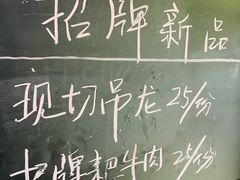 招牌新品
现切吊龙25/份
招牌耙牛肉25/份